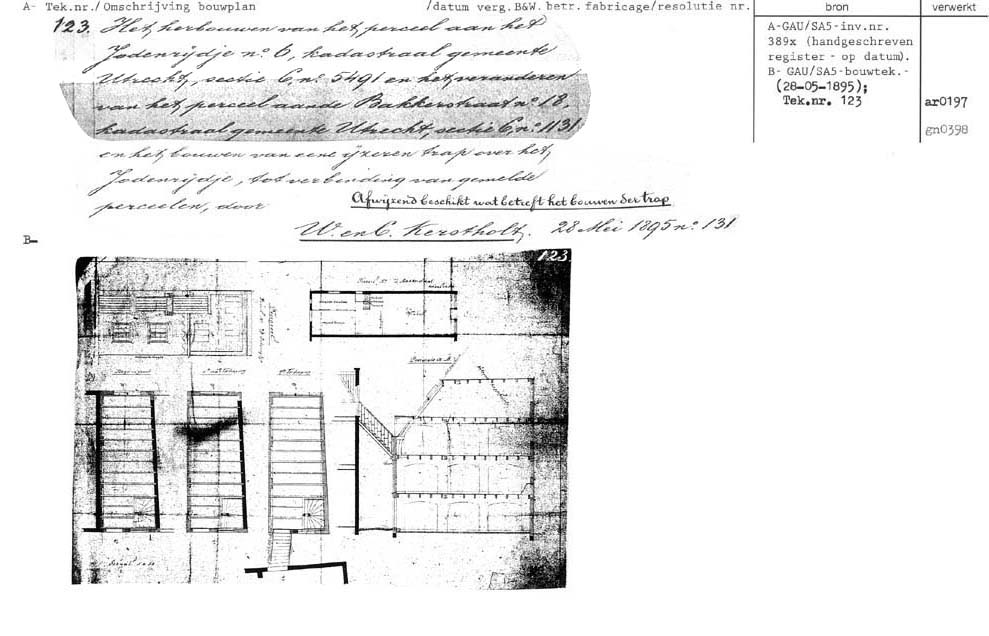 A- Tek.nr./Omschrijving bouwplan /datum verg.B&W. betr. fabricage/resolutie nr. bron verwerkt
123. Het herbouwen van het perceel aan het
Jodenrijdje no. 6, kadastraal gemeente
Utrecht, sectie C, no. 5491 en het veranderen
van het perceel aan de Bakkerstraat no. 18,
kadastraal gemeente Utrecht, sectie C, no. 1131
en het bouwen van eene ijzeren trap over het
Jodenrijdje, tot verbinding van gemelde
perceelen, door
Afwijzend beschikt wat betreft het bouwen der trap
W. en C. Kerstholt. 28 Mei 1895 no. 131
A-GAU/SA5-inv.nr.
389x (handgeschreven
register - op datum).
B- GAU/SA5-bouwtek.-
(28-05-1895);
Tek.nr. 123
ar0197
gn0398
B-
123